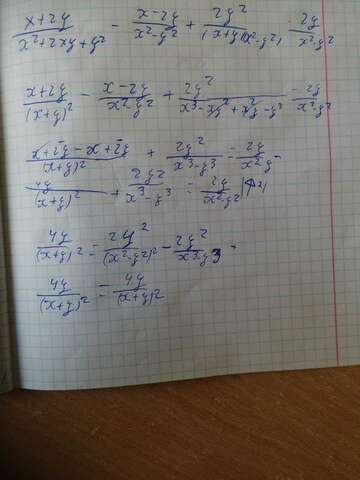 x+2y/x²+2xy+y² - x-2y/x²-y² + 2y²/(x+y)(x²-y²) = 2y/x²-y²
x+2y/(x+y)² - x-2y/x²-y² + 2y²/x³-xy²+x²y-y³ = 2y/x²-y²
x+2y-x+2y/(x+y)² + 2y²/x³-y³ = 2y/x²-y²
4y/(x+y)² + 2y²/x³-y³ = 2y/x²-y² |(↑²)
4y/(x+y)² = 2y²/(x²-y²)² - 2y²/x³-y³
4y/(x+y)² = 4y/(x+y)²